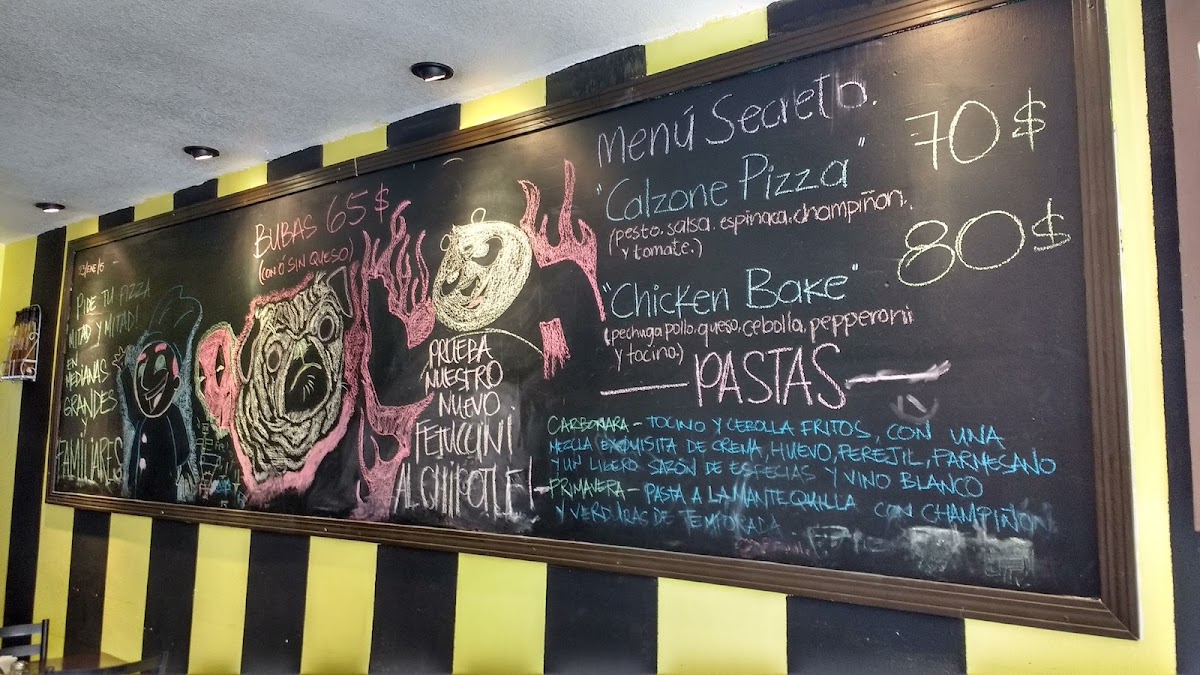 PIDE TU PIZZA
MITAD Y MITAD!
EN
MEDIANAS
GRANDES
Y
FAMILIARES
BUBAS 65$
(CON Ó SIN QUESO)
PRUEBA
NUESTRO
NUEVO
FETUCCINI
AL CHIPOTLE!
Menú Secreto.
"Calzone Pizza" 70$
(pesto, salsa, espinaca, champiñon,
y tomate.)
"Chicken Bake" 80$
(pechuga pollo, queso, cebolla, pepperoni
y tocino.)
PASTAS
CARBONARA - TOCINO Y CEBOLLA FRITOS, CON UNA
MEZCLA EXQUISITA DE CREMA, HUEVO, PEREJIL, PARMESANO
Y UN LIGERO SAZÓN DE ESPECIAS Y VINO BLANCO
PRIMAVERA - PASTA A LA MANTEQUILLA CON CHAMPIÑON
Y VERDURAS DE TEMPORADA